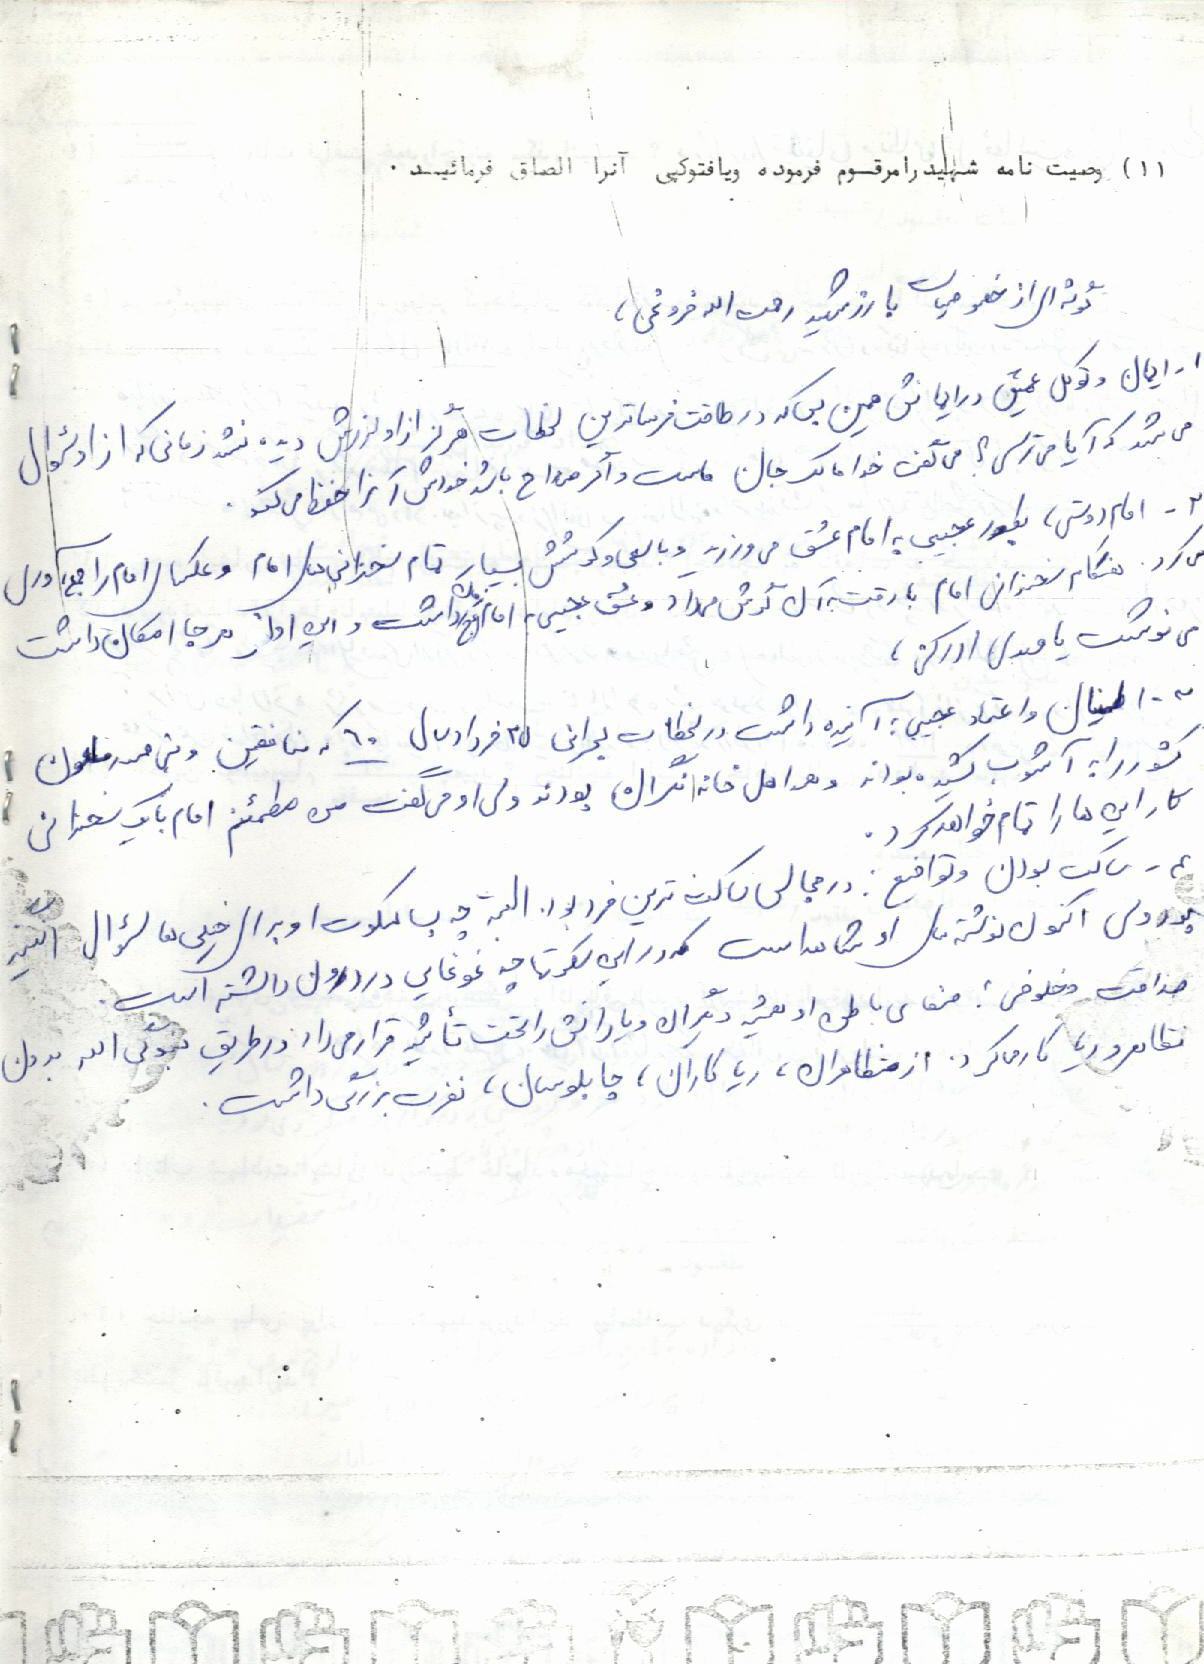 (۱) وصیت نامه شهید را مرقوم فرموده و یا فتوکپی آنرا الصاق فرمائید .
گوشه ای از خصوصیات بارز شهید رحمت اله فروغی ،
۱- ایمان و توکل عمیق در ایمانش همین بس که در طاقت فرساترین لحظات هرگز از او لرزش دیده نشد زمانی که از او سئوال
می شد که آیا می ترسی ؟ می گفت خدا مالک جان ماست و اگر صلاح باشد خودش آنرا حفظ می کند .
۲- امام دوستی ، بطور عجیبی به امام عشق می ورزید و با سعی و کوشش بسیار تمام سخنرانی های امام و عکسهای امام را جمع آوری
می کرد . هنگام سخنرانی امام با دقت به آن گوش میداد و عشق عجیبی به امام داشت و این اواخر هر جا امکان داشت
می نوشت یا مهدی ادرکنی ،
۳- اطمینان و اعتماد عجیبی به آینده داشت در لحظات بحرانی ۳۰ خرداد سال ۶۰ که منافقین و بنی صدر ملعون
کشور را به آشوب کشیده بودند و همه اهل خانه نگران بودند ولی او می گفت من مطمئنم امام با یک سخنرانی
کار این ها را تمام خواهد کرد .
۴- ساکت بودن و تواضع : در مجالس ساکت ترین فرد بود . البته چه بسا سکوت او برای خیلی ها سئوال انگیز
بود ولی اکنون نوشته های او شاهد است که در این سکوتها چه غوغایی در درون داشته است .
صداقت و خلوص : صفای باطن او همیشه دیگران و یارانش را تحت تأثیر قرار می داد در طریق الی الله بدون
تظاهر و ریا کار میکرد . از متظاهران ، ریاکاران ، چاپلوسان ، نفرت بزرگی داشت .